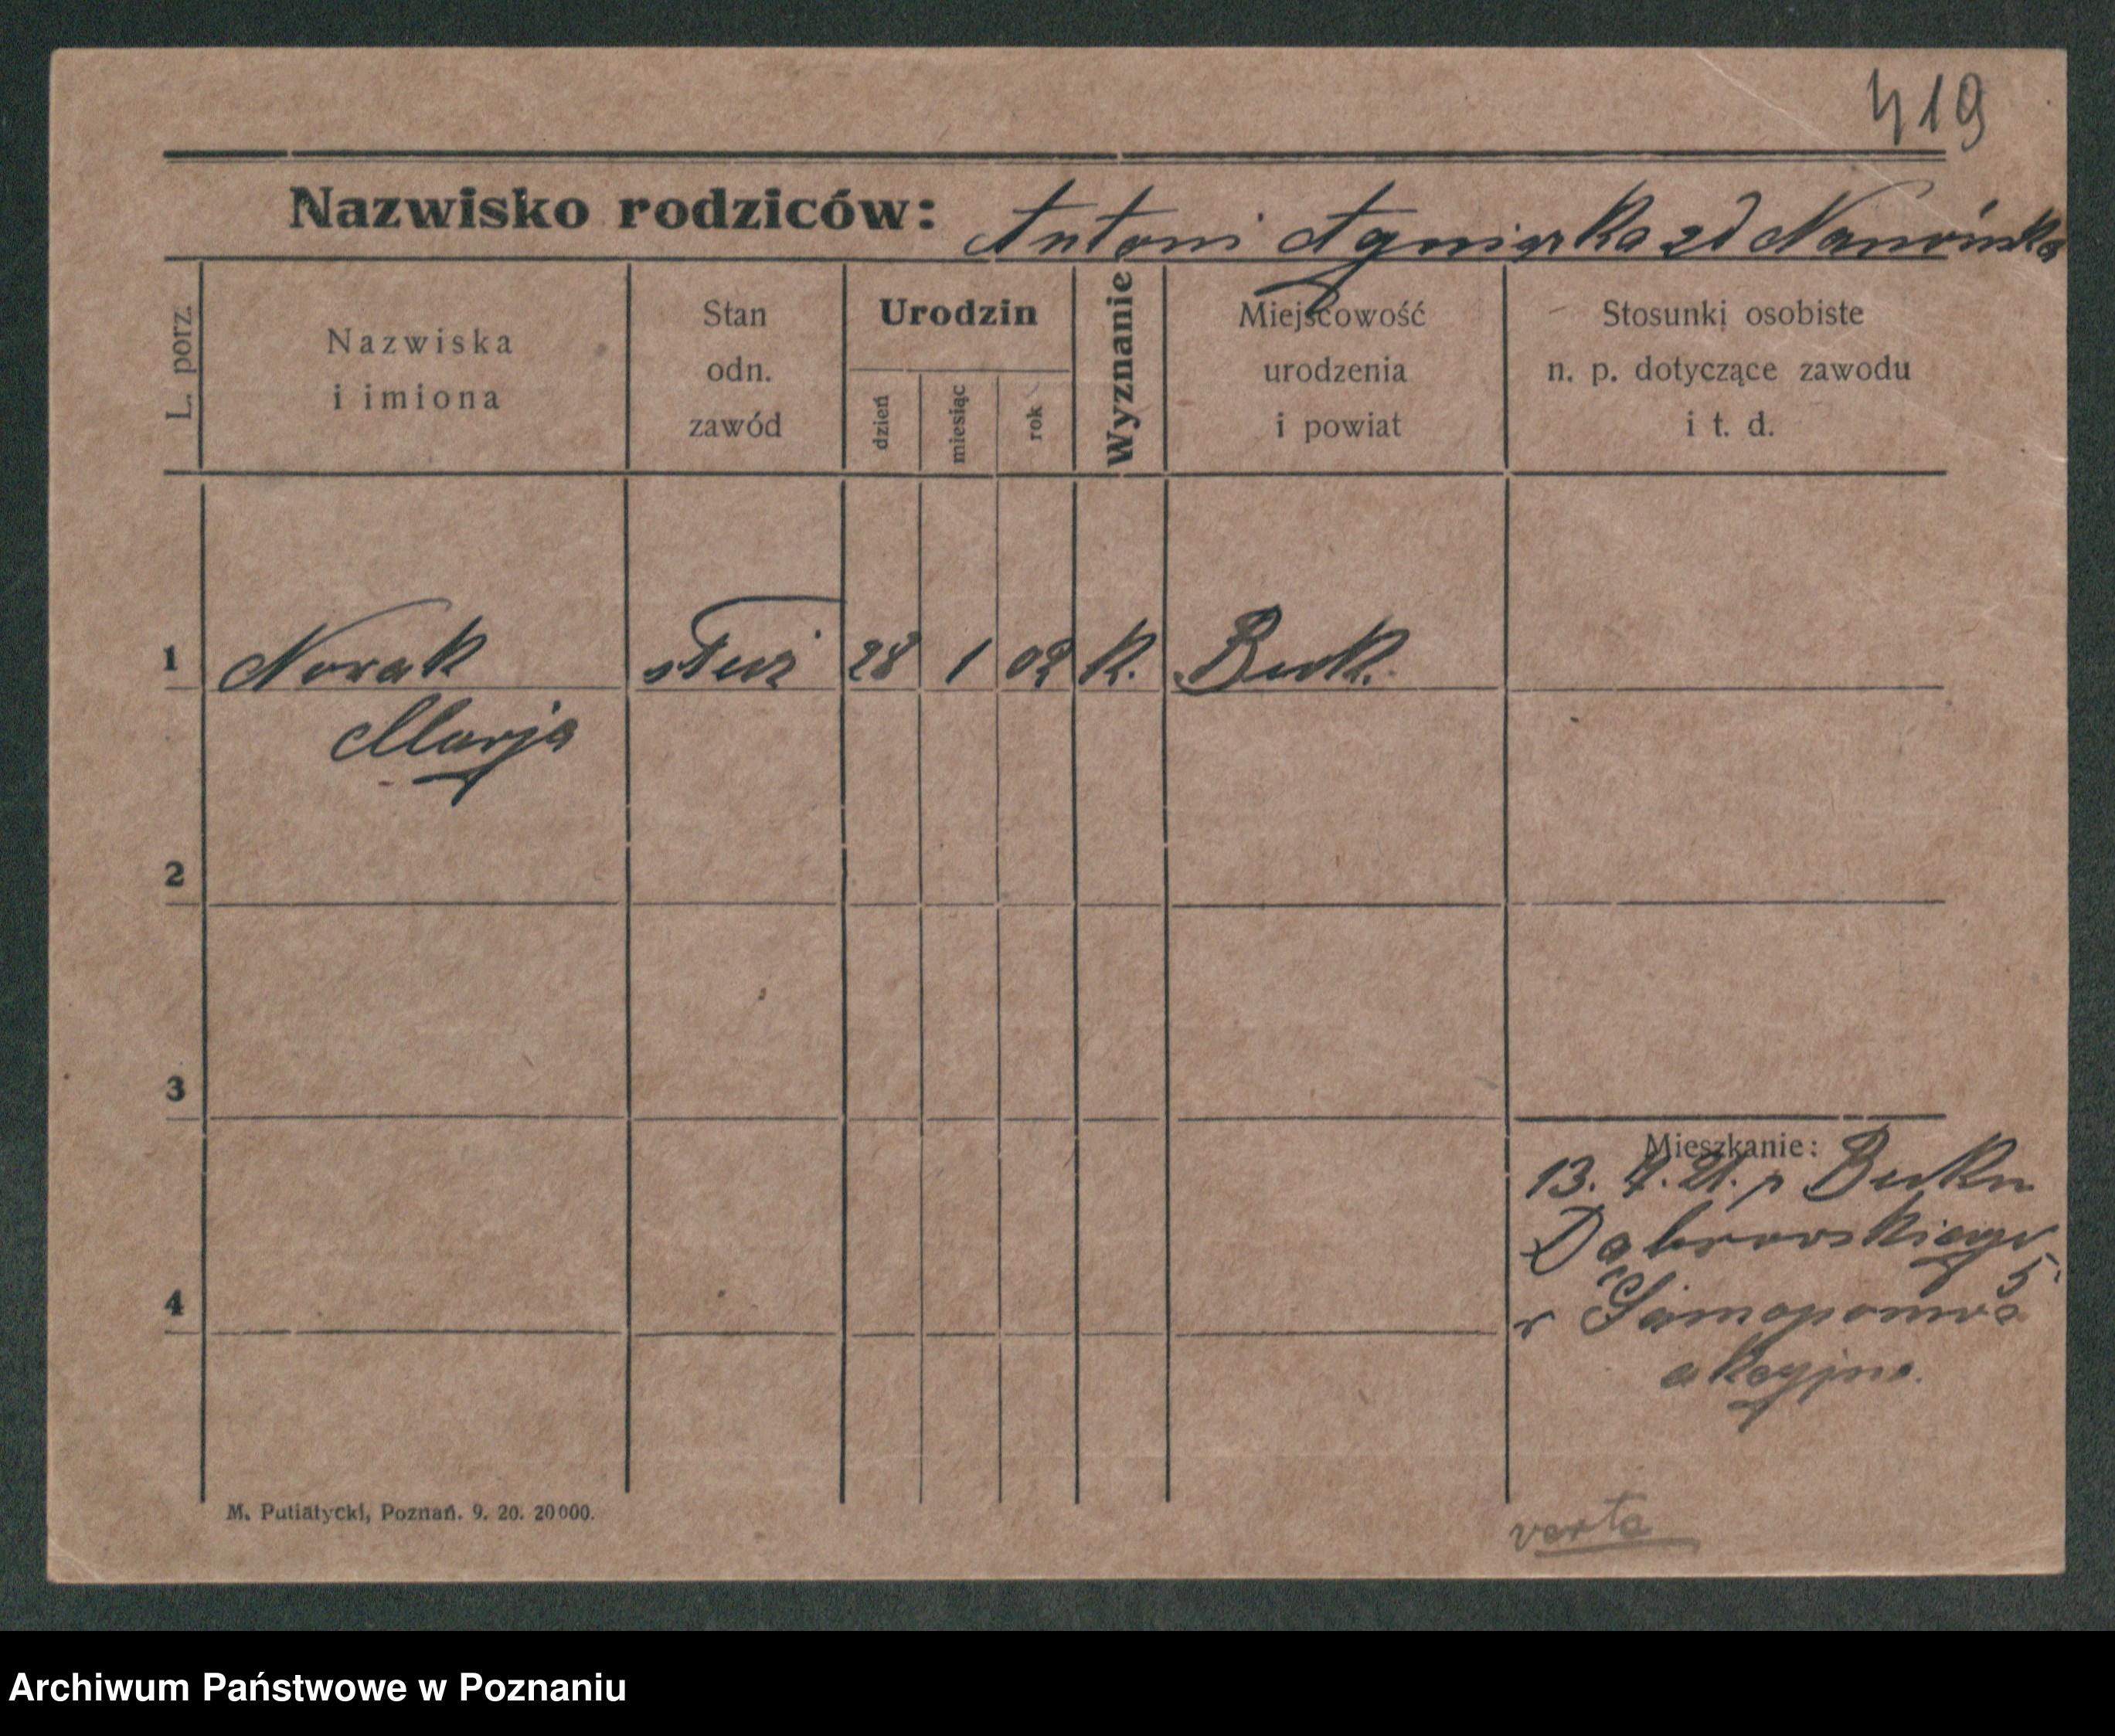 419
Nazwisko rodziców: Antoni Agnieszka zd
L. porz.
Nazwiska
i imiona
Stan
odn.
zawód
Urodzin
dzień
miesiąc
rok
Wyznanie
Miejscowość
urodzenia
i powiat
Stosunki osobiste
n. p. dotyczące zawodu
i t. d.
1 Nowak 28 1 02 k. Buk.
Marja
2
3
4
Mieszkanie:
13. 4. 21. z Buku
Dąbrowskiego
5
akcyjna.
M. Putiatycki, Poznań. 9. 20. 20000.
verte
Archiwum Państwowe w Poznaniu